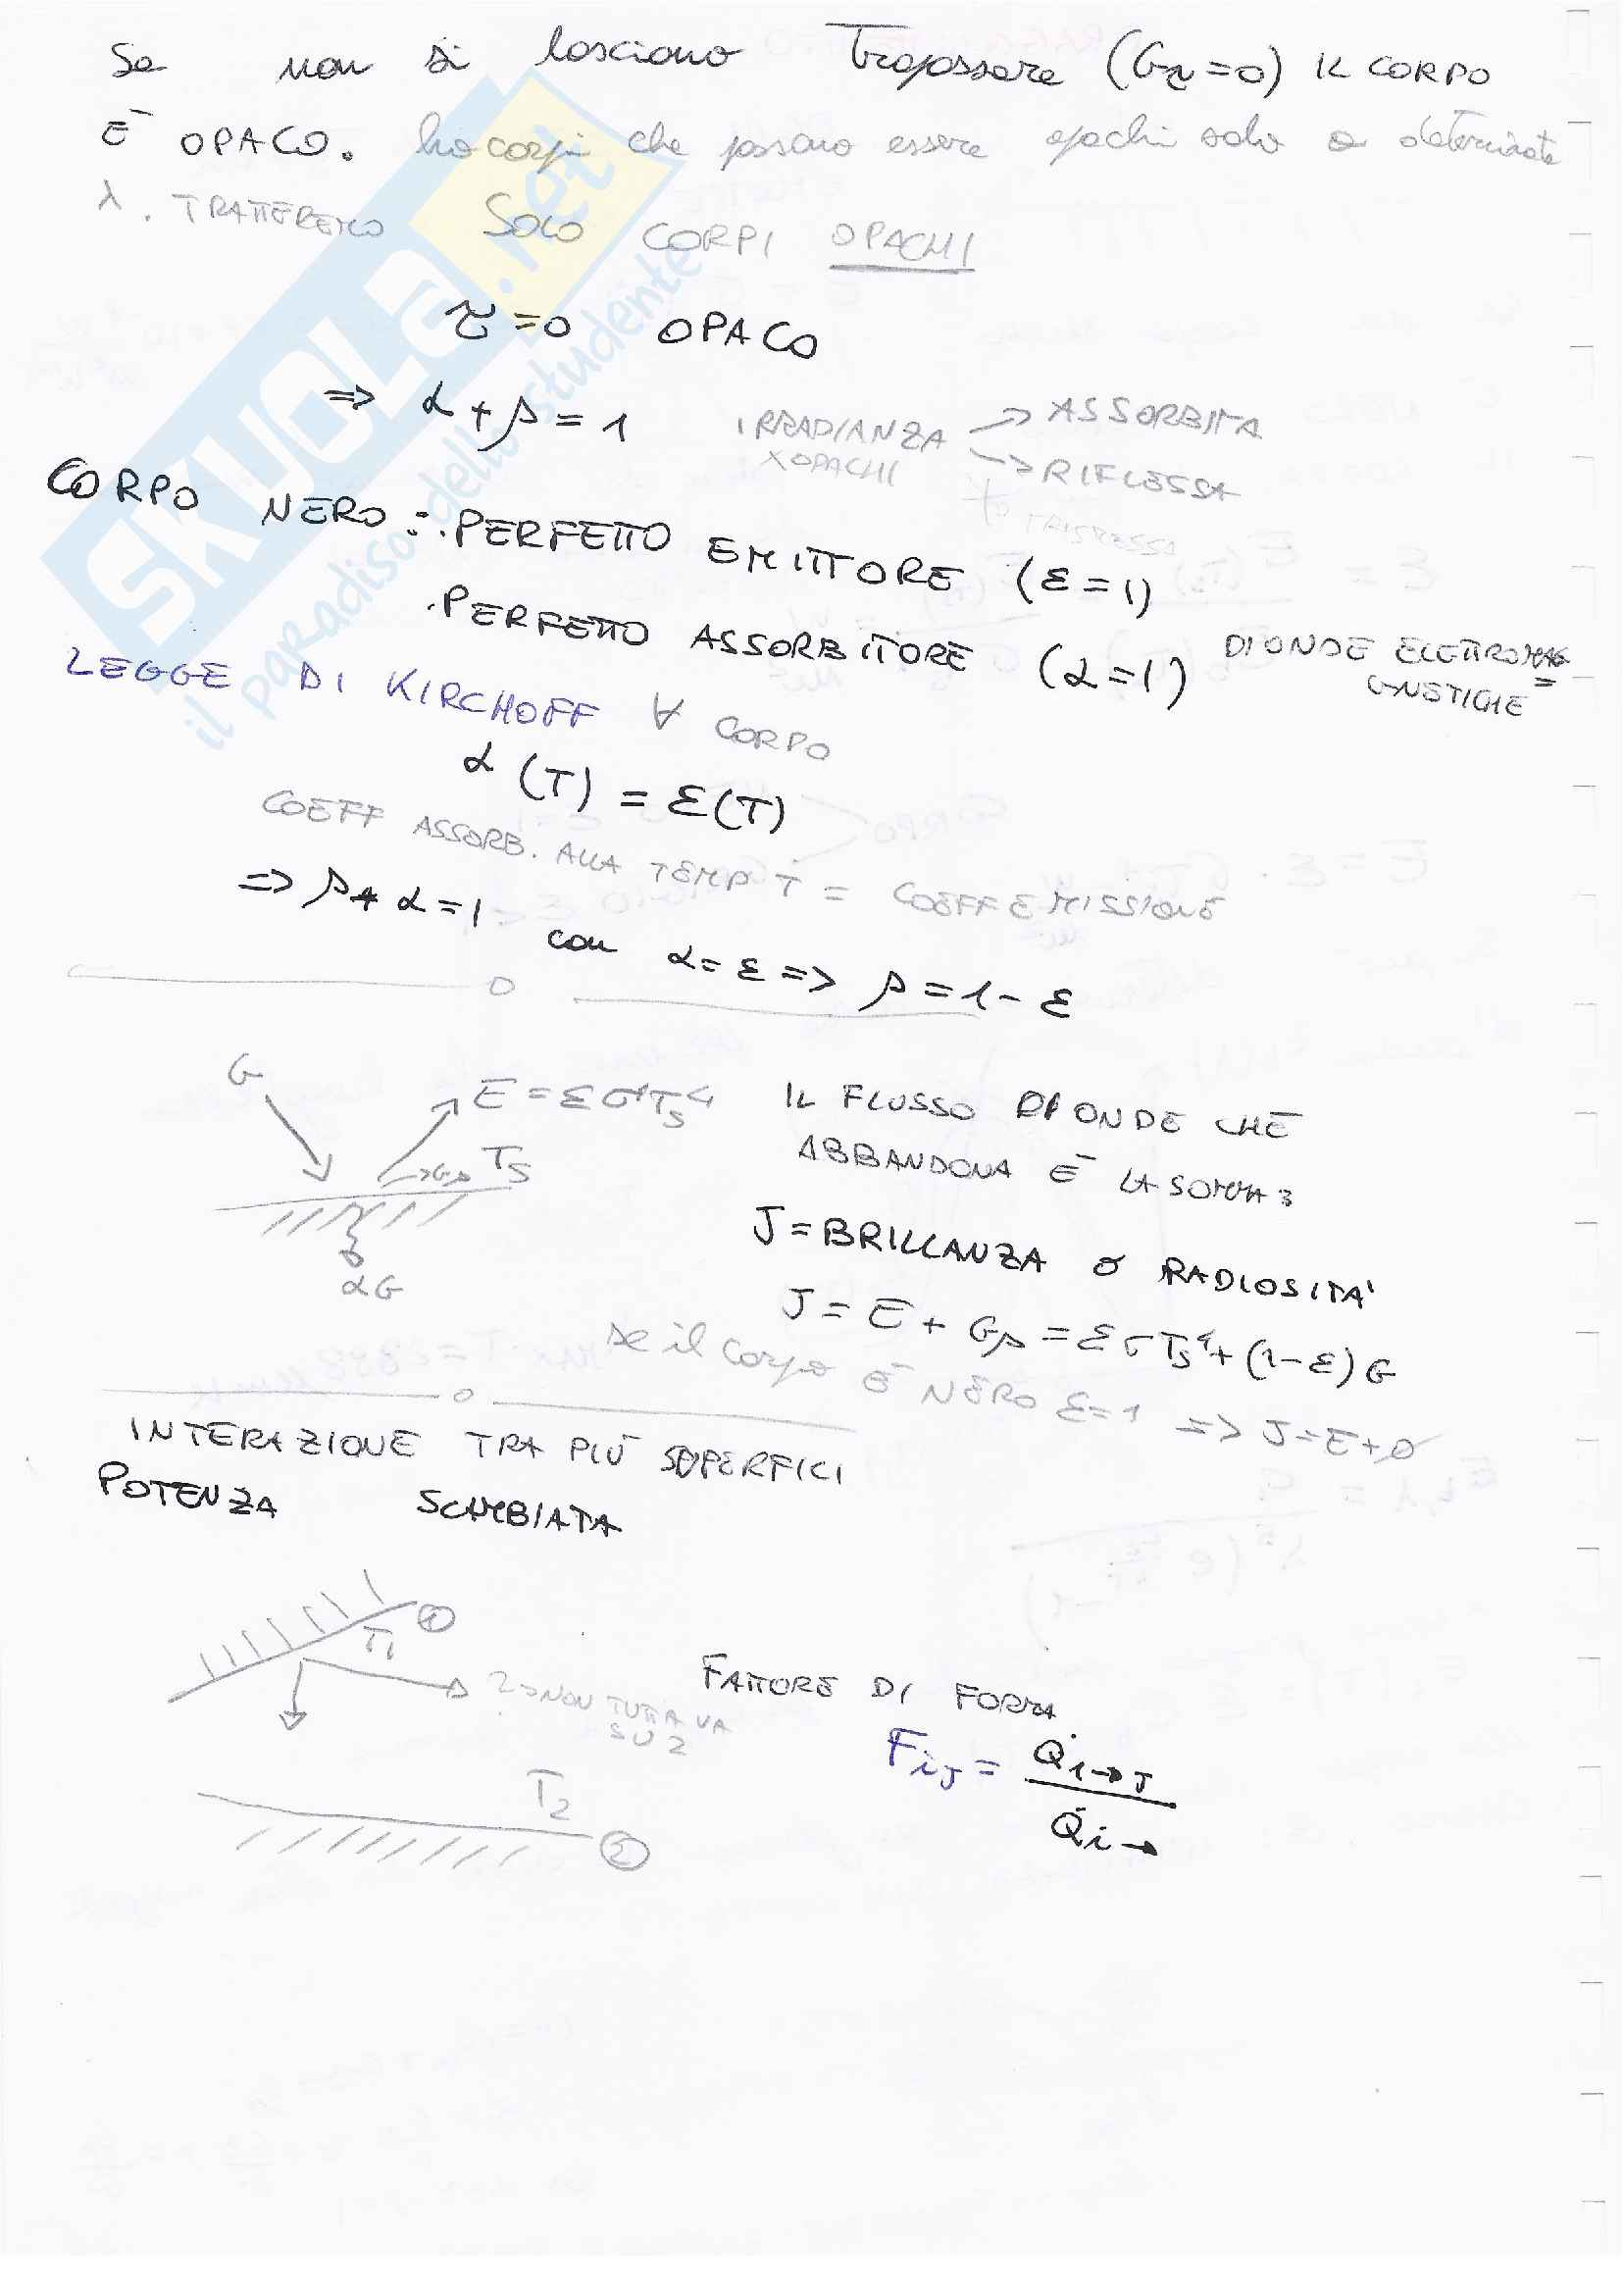 Se non si lasciano Trapassare (Gτ=0) IL CORPO
È OPACO. ho corpi che possono essere opachi solo a determinate
λ. TRATTEREMO SOLO CORPI OPACHI
τ=0 OPACO
=> α+ρ=1 IRRADIANZA XOPACHI -> ASSORBITA
-> RIFLESSA
CORPO NERO: .PERFETTO EMITTORE (ε=1)
.PERFETTO ASSORBITORE (α=1) DI ONDE ELETTROMA=
GNETICHE
LEGGE DI KIRCHOFF ∀ CORPO
α(T) = ε(T)
COEFF ASSORB. ALLA TEMP T = COEFF EMISSIONE
=> ρ+α=1 con α=ε => ρ=1-ε
G E=εσTs⁴ IL FLUSSO DI ONDE CHE
Ts Gρ ABBANDONA È LA SOMMA:
αG J=BRILLANZA O RADIOSITA'
J=E+Gρ=εσTs⁴+(1-ε)G
se il corpo È NERO ε=1 => J=E+0
INTERAZIONE TRA PIÙ SUPERFICI
POTENZA SCAMBIATA
T1 1
2->NON TUTTA VA
SU 2
FATTORE DI FORMA
FiJ = Q̇i->J / Q̇i->
T2 2
SKUOLA.net
il paradiso dello studente